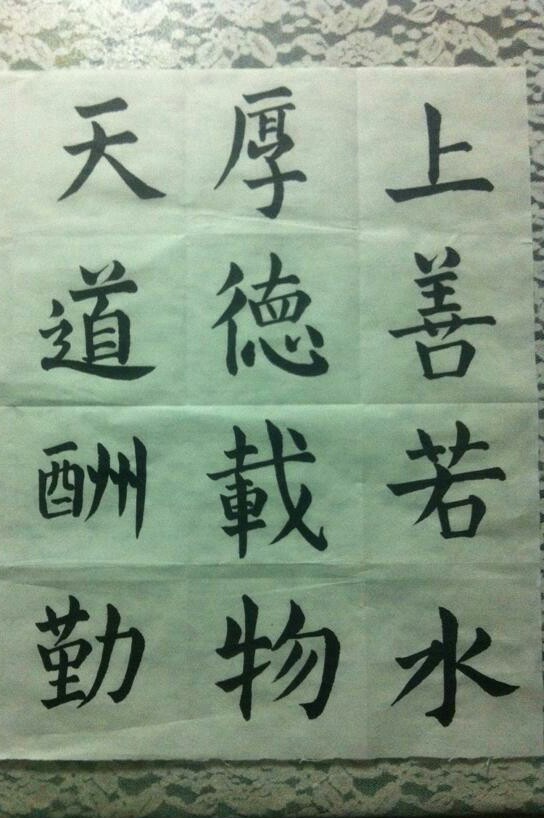 上善若水
厚德載物
天道酬勤